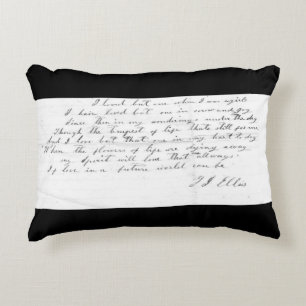 I loved but one when I was a girl
I have loved but one in sorrow and joy
Since then in my wanderings under the sky
Though the tempest of life thats still for me
And I love but that one in my heart to day
When the flowers of life are dying away
my Spirit will love that one allways
If love in a future world can be
T J Ellis